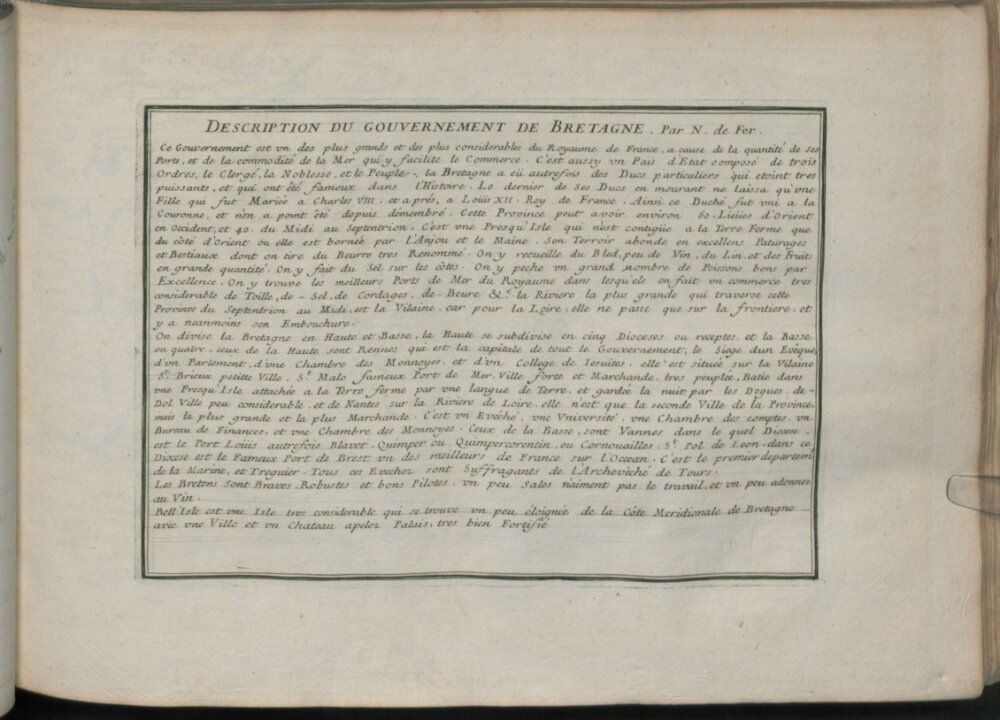 DESCRIPTION DU GOUVERNEMENT DE BRETAGNE. Par N. de Fer.
Ce Gouvernement est vn des plus grands et des plus considerables du Royaume de France, a cause de la quantité de Ses
Ports, et de la commodité de la Mer qui y facilite le Commerce. C'est aussy vn Païs d'Etat composé de trois
Ordres, le Clergé, la Noblesse, et le Peuple, la Bretagne a eü autrefois des Ducs particuliers qui etoint tres
puissants, et qui ont été fameux dans l'Histoire. Le dernier de Ses Ducs en mourant ne laissa qu'vne
Fille qui fut Mariée a Charles VIII. et aprés, a Loüis XII. Roy de France. Ainsi ce Duché fut vni a la
Couronne, et n'en a point été depuis démembré. Cette Province peut avoir environ 60. Lieües d'Orient
en Occident, et 40. du Midi au Septentrion. C'est vne Presqu'Isle qui n'est contigüe a la Terre Ferme que
du côté d'Orient ou elle est bornée par l'Anjou et le Maine. Son Terroir abonde en excellens Paturages
et Bestiaux dont on tire du Beurre tres Renommé. On y recueille du Bled, peu de Vin, du Lin, et des fruits
en grande quantité. On y fait du Sel sur les côtes. On y peche vn grand nombre de Poissons bons par
Excellence. On y trouve les meilleurs Ports de Mer du Royaume dans lesqu'els on fait vn commerce tres
considerable de Toille, de Sel, de Cordages, de Beure &c. la Riviere la plus grande qui traverse cette
Province du Septentrion au Midi, est la Vilaine, car pour la Loire, elle ne passe que sur la frontiere, et
y a neanmoins son Embouchure.
On divise la Bretagne en Haute et Basse, la Haute se subdivise en cinq Dioceses ou receptes, et la Basse
en quatre. ceux de la Haute sont Rennes qui est la capitale de tout le Gouvernement, le Siege d'un Evêque,
d'vn Parlement, d'vne Chambre des Monnoyes, et d'vn College de Iesuites. elle est située sur la Vilaine
St. Brieux petitte Ville, St. Malo fameux Ports de Mer. Ville forte et Marchande, tres peuplée, Batie dans
vne Presqu'Isle attachée a la Terre ferme par vne langue de Terre, et gardée la nuit par les Dogues. de
Dol Ville peu considerable, et de Nantes sur la Riviere de Loire, elle n'est que la seconde Ville de la Province,
mais la plus grande et la plus Marchande. C'est vn Evéché, vne Vniversité, vne Chambre des comptes, vn
Bureau de Finances, et vne Chambre des Monnoyes. Ceux de la Basse, sont Vannes dans le quel Diocese.
est le Port Loüis autrefois Blavet. Quimper ou Quimpercorentin, ou Cornouailles. St. Pol de Leon. dans ce
Diocese est le Fameux Port de Brest vn des meilleurs de France sur l'Ocean. C'est le premier departemt.
de la Marine, et Treguier. Tous ces Evechez sont Suffragants de l'Archevêché de Tours.
Les Bretons Sont Braves, Robustes et bons Pilotes. vn peu Sales n'aiment pas le travail, et vn peu adonnez
au Vin.
Bell'Isle est vne Isle tres considerable qui se trouve vn peu éloignée de la Côte Meridionale de Bretagne
avec vne Ville et vn Chateau apelez Palais, tres bien Fortifié